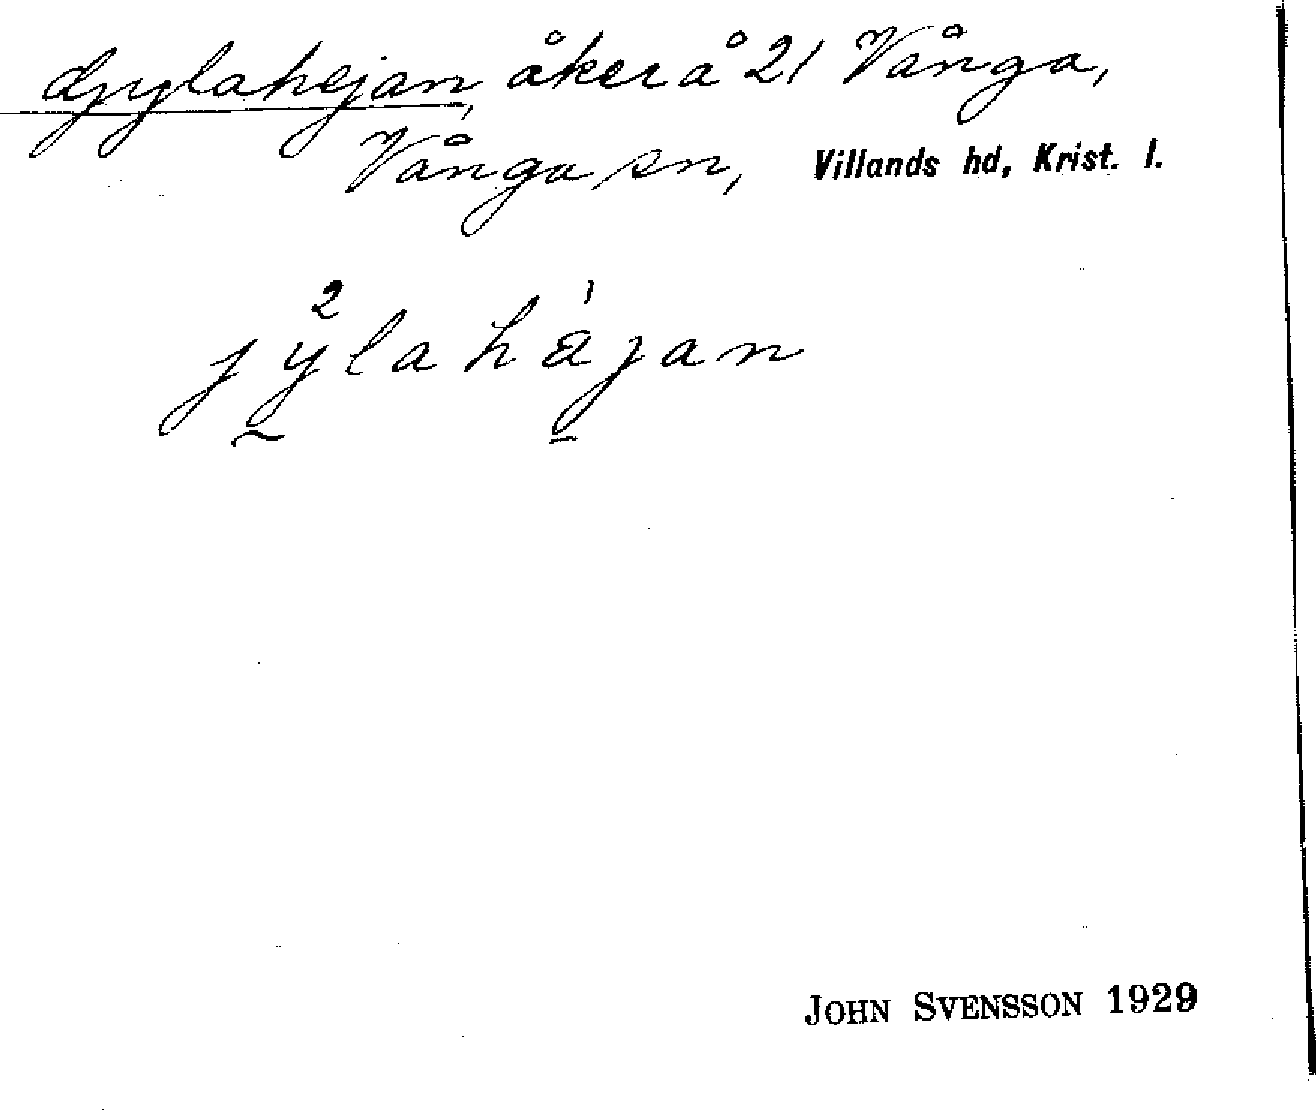 djylahejan, åker å 21 Vånga,
Vånga sn, Villands hd, Krist. l.
jy²lahá¹jan
JOHN SVENSSON 1929